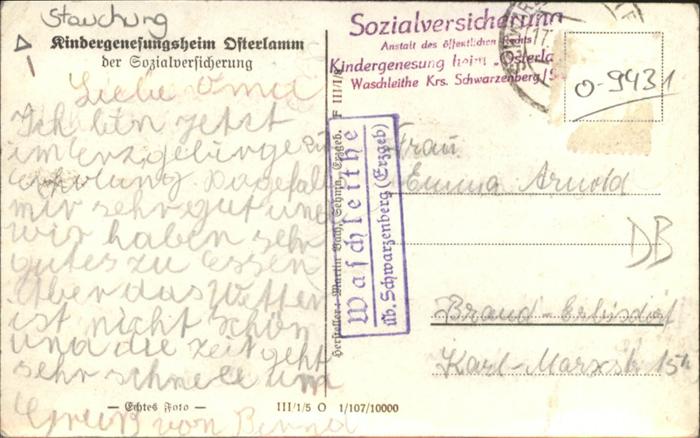 Stauchung
Kindergenesungsheim Osterlamm
der Sozialversicherung
Liebe Oma
Ich bin jetzt
im erzgebürge zu
erholung Da gefall
mir sehr gut und
wir haben sehr
gutes zu essen
Aber das Wetter
ist nicht schön
und die zeit geht
sehr schnell um
Gruß von Bernd
— Echtes Foto —
III/1/5 O 1/107/10000
F III/1/8
Sozialversicherung
Anstalt des öffentlichen Rechts
Kindergenesung heim -Osterla
Waschleithe Krs. Schwarzenberg/
17.
O-9431
Waschleithe
üb. Schwarzenberg (Erzgeb)
Frau
Emma Arnold
DB
Brand-Erbisdorf
Karl-Marxstr 15